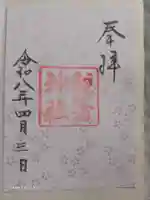 奉拝
令和八年四月三日